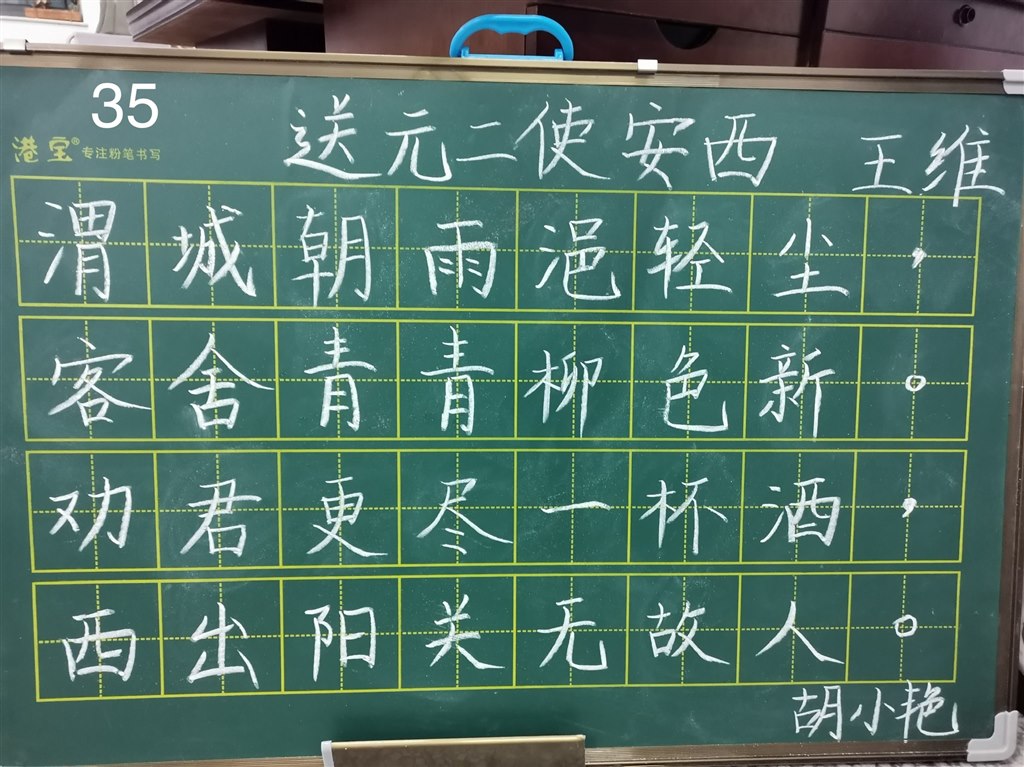 35
港宝® 专注粉笔书写
送元二使安西 王维
渭城朝雨浥轻尘，
客舍青青柳色新。
劝君更尽一杯酒，
西出阳关无故人。
胡小艳